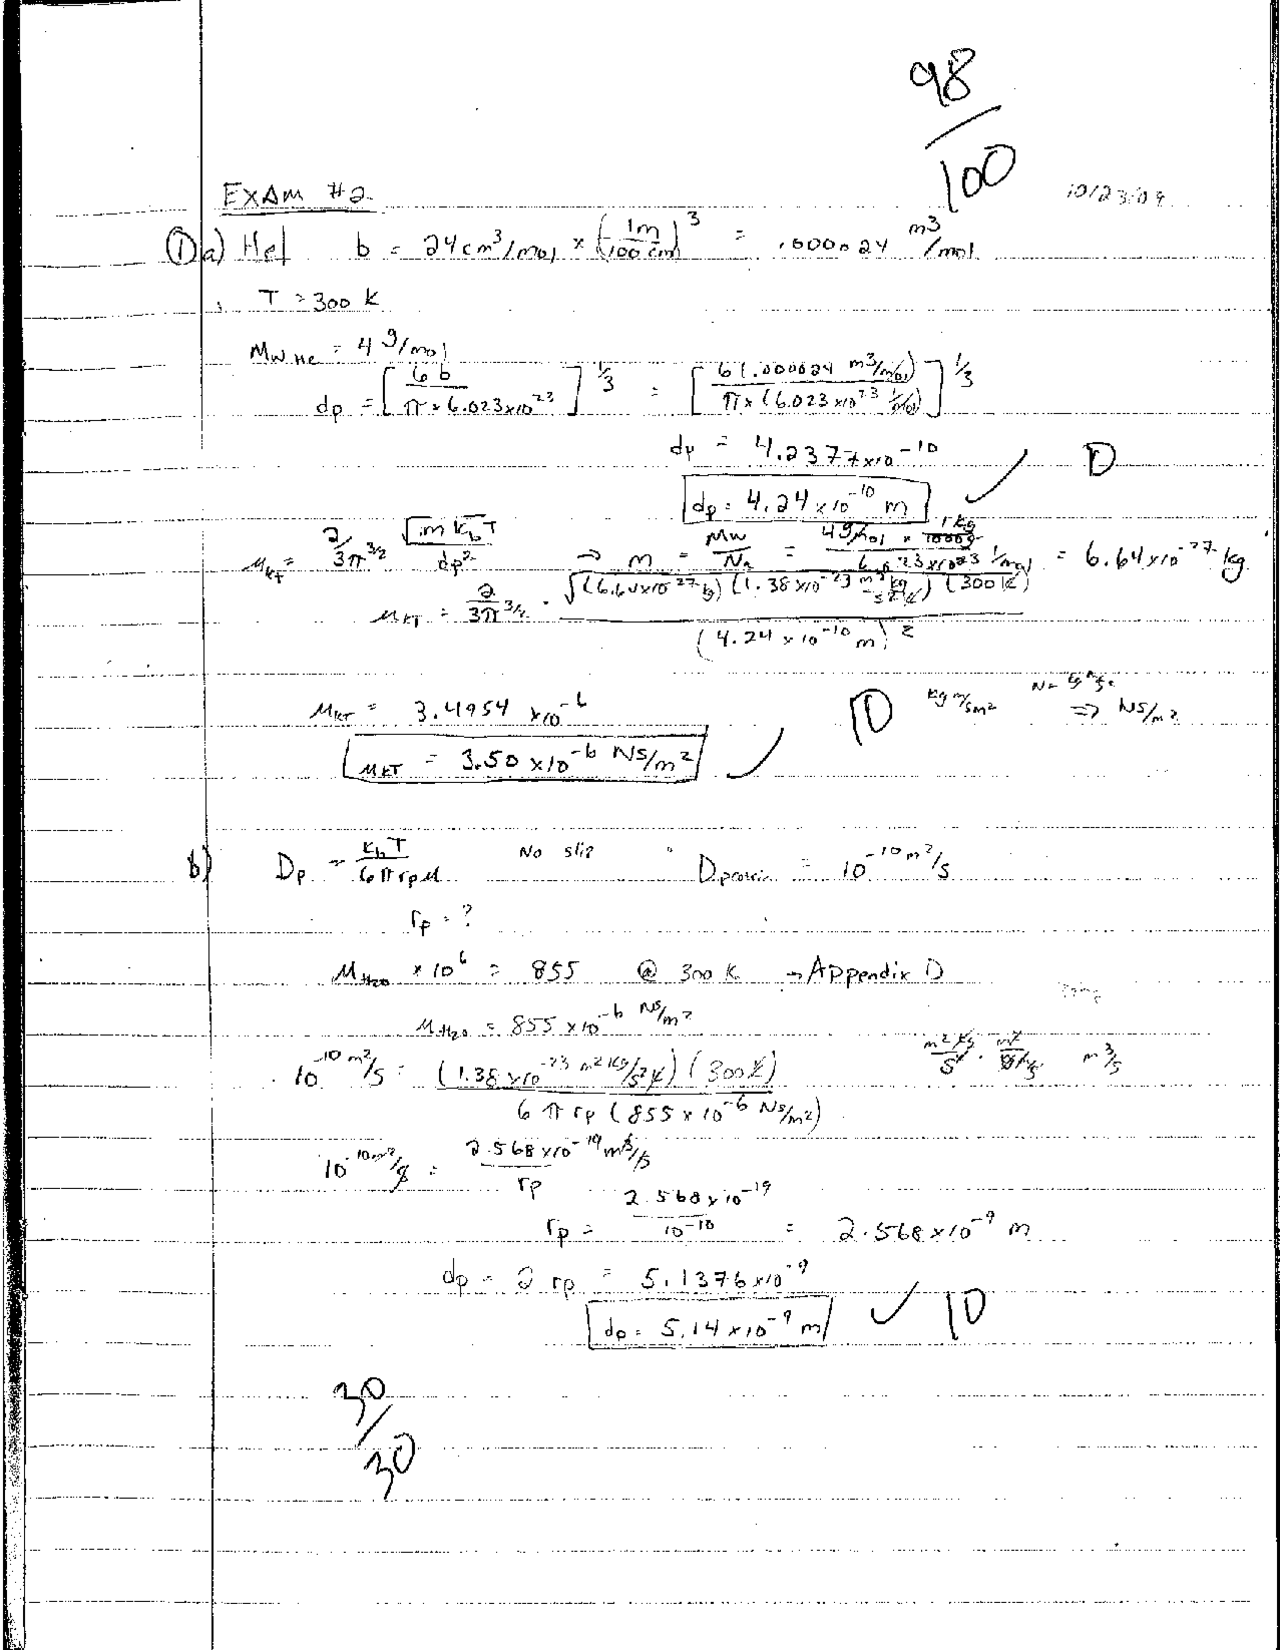 98/100
Exam #2 10/23/09
① a) Hel b = 24 cm³/mol × (1m/100 cm)³ = .000024 m³/mol
T = 300 K
MW He = 4 g/mol
dp = [6b / π × 6.023×10²³]^⅓ = [6(.000024 m³/mol) / π × (6.023×10²³ 1/mol)]^⅓
dp = 4.2377×10⁻¹⁰
dp = 4.24×10⁻¹⁰ m ✓ 10
μKT = 2/3π^3/2 √(m kb T) / dp² → m = MW/Na = 4 g/mol × 1 kg/1000g / 6.023×10²³ 1/mol = 6.64×10⁻²⁷ kg
μKT = 2/3π^3/2 · √((6.64×10⁻²⁷ kg)(1.38×10⁻²³ m² kg/s² K)(300 K)) / (4.24×10⁻¹⁰ m)²
μKT = 3.4954×10⁻⁶ 10 kg m/s m² ⇒ NS/m²
μKT = 3.50×10⁻⁶ NS/m² ✓
b) Dp = kb T / 6π rp μ No slip = 10⁻¹⁰ m²/s
rp = ?
μH₂O × 10⁶ = 855 @ 300 K → Appendix D
μH₂O = 855×10⁻⁶ NS/m²
10⁻¹⁰ m²/s = (1.38×10⁻²³ m² kg/s² K)(300 K) / 6 π rp (855×10⁻⁶ NS/m²) m³/s
10⁻¹⁰ m²/s = 2.568×10⁻¹⁹ m³/s / rp
rp = 2.568×10⁻¹⁹ / 10⁻¹⁰ = 2.568×10⁻⁹ m
dp = 2 rp = 5.1376×10⁻⁹
dp = 5.14×10⁻⁹ m ✓ 10
30/30